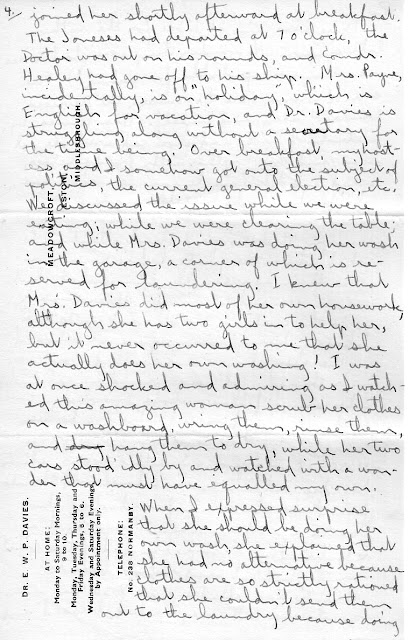 4. joined her shortly afterward at breakfast.
The Joneses had departed at 7 o'clock, the
Doctor was out on his rounds, and Comdr.
Healey had gone off to his ship. Mrs. Payne,
incidentally, is on "holiday", which is
English for vacation, and Dr. Davies is
struggling along without a secretary for
the time being. Over breakfast, my host-
ess and I somehow got onto the subject of
politics, the current general election, etc.
We discussed the issue while we were
eating; while we were clearing the table;
and while Mrs. Davies was doing her wash
in the garage, a corner of which is re-
served for laundering. I knew that
Mrs. Davies did most of her own housework,
although she has two girls in to help her,
but it never occurred to me that she
actually does her own washing! I was
at once shocked and admiring as I watch-
ed this amazing woman scrub her clothes
on a washboard, wring them, rinse them,
and hang them to dry, while her two
cars stood idly by and watched with a won-
der that must have equalled my own.
When I expressed surprise
that she should be doing her
own wash, she explained that
she had no alternative because
clothes are so strictly rationed
that she couldn't send them
out to the laundry because doing
MEADOWCROFT,
ESTON,
MIDDLESBROUGH.
DR. E. W. P. DAVIES.
AT HOME:
Monday to Saturday Mornings,
9 to 10.
Monday, Tuesday, Thursday and
Friday Evenings, 5 to 6.
Wednesday and Saturday Evenings
by Appointment only.
TELEPHONE:
No. 238 NORMANBY.